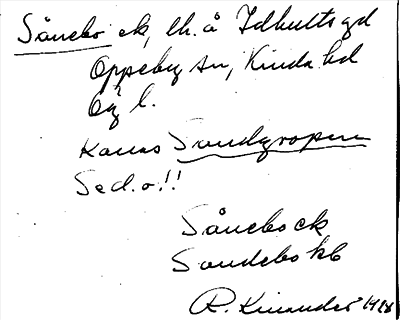 Sånebo ck, lh. å Idhultsgd
Oppeby sn, Kinda hd
Ög l.
Kallas Sandgropen
Se d. o.!!
Sånebo ck
Sandebo kb
R. Kinander 1918